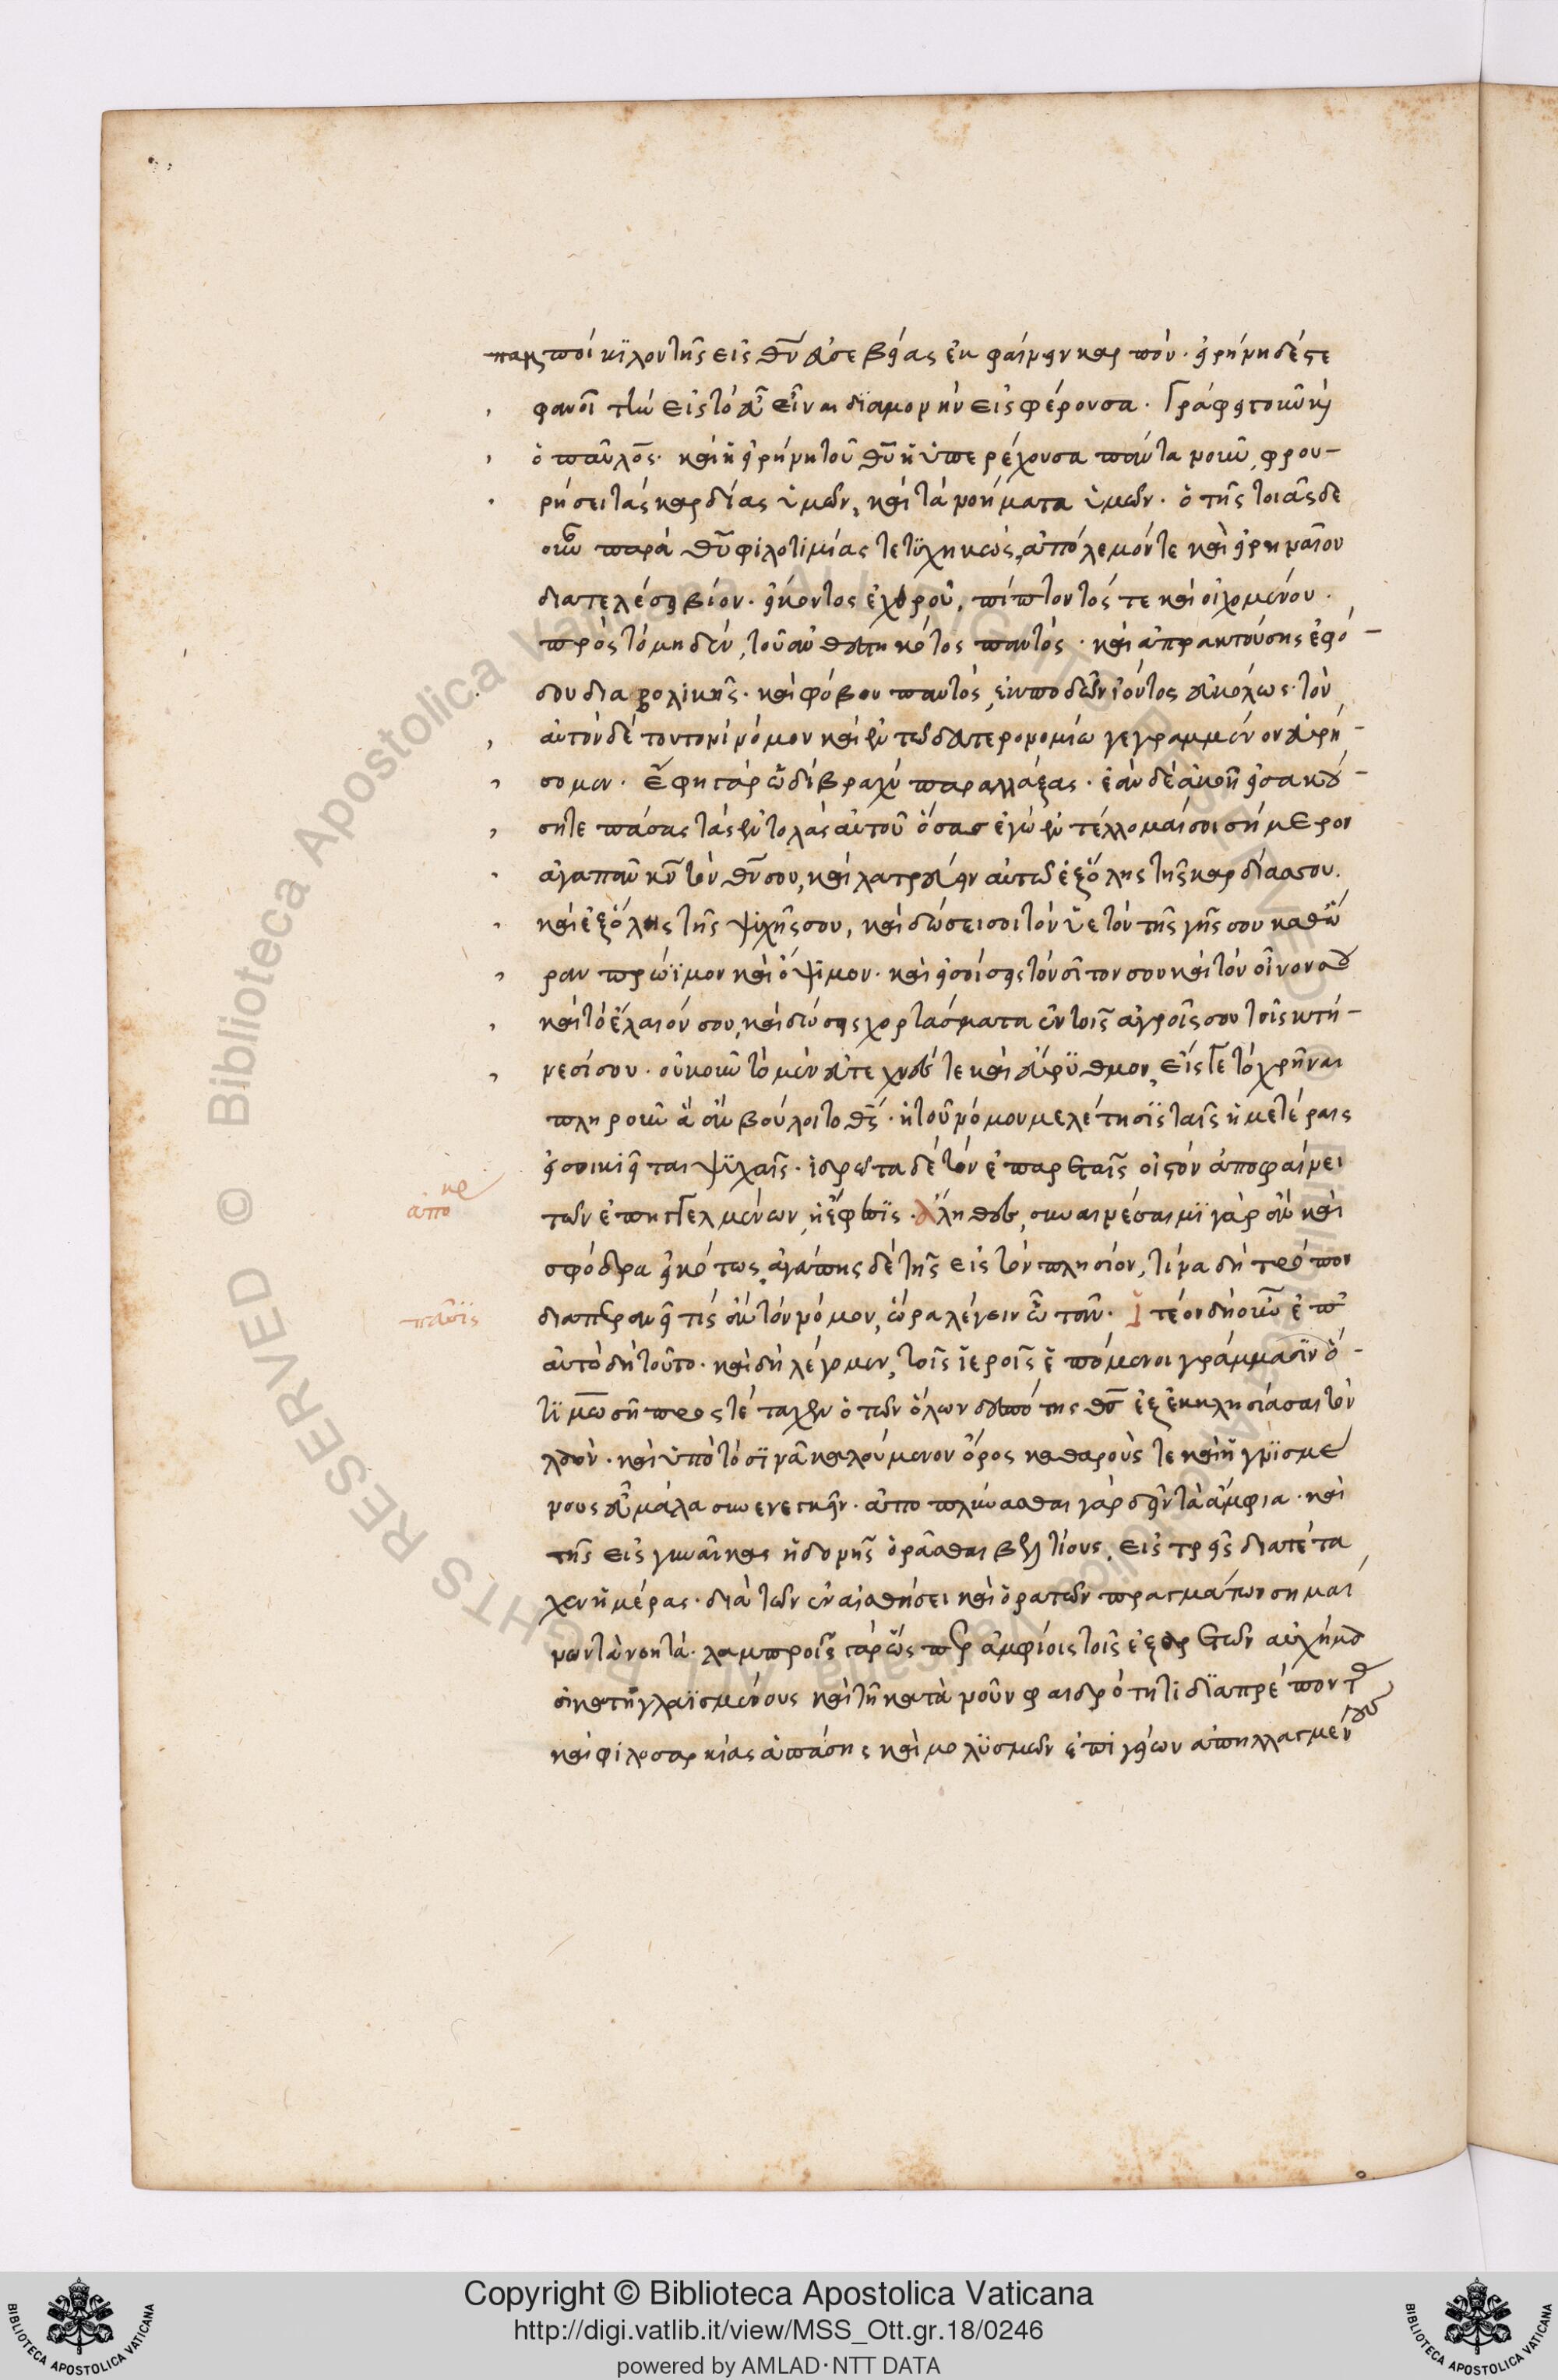 παμποίκιλον τῆς εἰς θν̅ εὐσεβείας ἐκφαίνειν καρπόν. εἰρήνη δέ γε
φανοῖ τὴν εἰς τὸ εὖ εἶναι διαμονὴν εἰσφέρουσα. Γράφει καὶ
ὁ παῦλος. καὶ ἡ εἰρήνη τοῦ θυ̅ ἡ ὑπερέχουσα πάντα νοῦν, φρου-
ρήσει τὰς καρδίας ὑμῶν, καὶ τὰ νοήματα ὑμῶν. ὁ τῆς τοιᾶσδε
οὖν παρὰ θυ̅ φιλοτιμίας τετυχηκώς, ἀπόλεμόν τε καὶ εἰρηναῖον
διατελέσει βίον. εἴκοντος ἐχθροῦ, πίπτοντός τε καὶ οἰχομένου.
πρὸς τὸ μηδέν, τοῦ ἀνθεστηκότος παντός. καὶ ἀπρακτούσης ἐφό-
δου διαβολικῆς. καὶ φόβου παντὸς, ἐκποδὼν ἰόντος εὐκόλως. τὸν
αὐτὸν δὲ τουτονὶ νόμον καὶ ἐν τῷ δευτερονομίῳ γεγραμμένον εὑρή-
σομεν. ἔφη γὰρ ὡδὶ βραχὺ παραλλάξας. ἐὰν δὲ ἀκοῇ εἰσακού-
σητε πάσας τὰς ἐντολὰς αὐτοῦ ὅσας ἐγὼ ἐντέλλομαί σοι σήμερον
ἀγαπᾶν κν̅ τὸν θν̅ σου, καὶ λατρεύειν αὐτῷ ἐξόλης τῆς καρδίας σου.
καὶ ἐξόλης τῆς ψυχῆς σου, καὶ δώσει σοι τὸν ὑετὸν τῆς γῆς σου καθώ
ραν πρώϊμον καὶ ὄψιμον. καὶ εἰσοίσεις τὸν σῖτον σου καὶ τὸν οἶνον σου
καὶ τὸ ἔλαιόν σου, καὶ δώσεις χορτάσματα ἐν τοῖς ἀγροῖς σου τοῖς κτή-
νεσί σου. οὐκοῦν τὸ μὲν εὐτεχνές τε καὶ εὔρυθμον, εἴς γε τὸ χρῆναι
πληροῦν ἃ ἂν βούλοιτο θς̅. ἡ τοῦ νόμου μελέτησις ταῖς ἡμετέραις
εἰσοικιεῖται ψυχαῖς. ἱδρῶτα δὲ τὸν ἐπαρεταῖς οἰστὸν ἀποφαίνει
τῶν ἐπηγγελμένων, ἡ ἔφεσις. ἀληθὲς, συναινέσαιμι γὰρ ἂν καὶ
σφόδρα εἰκότως, ἀγάπης δὲ τῆς εἰς τὸν πλησίον, τίνα δὴ τρόπον
διαπεραν εῖ τίς ἂν τὸν νόμον, ὥρα λέγειν ὦ τᾶν. Ἰτέον δὴ οὖν ἐπ'
αὐτὸ δὴ τοῦτο. καὶ δὴ λέγομεν, τοῖς ἱεροῖς ἑπόμενοι γράμμασιν ὅ-
τι μωσῇ προστέταχεν ὁ τῶν ὅλων δεσπότης θς̅ ἐξεκκλησιάσαι τὸν
λαόν. καὶ ὑπὸ τὸ σινᾶ καλούμενον ὄρος καθαρούς τε καὶ ἡγνισμέ
νους εὖ μάλα συνενεγκεῖν. ἀποπλύνασθαι γὰρ δεῖν τὰ ἄμφια. καὶ
τῆς εἰς γυναῖκας ἡδονῆς ὁρᾶσθαι βελτίους, εἰς τρεῖς διατέτα
χεν ἡμέρας. διὰ τῶν ἐν αἰσθήσει καὶ ὁρατῶν πραγμάτων σημαί
νων τὰ νοητά. λαμπροῖς γὰρ ὥσπερ ἀμφίοις τοῖς ἐξαρετῶν αὐχήμα
σι κατηγλαϊσμένους καὶ τῇ κατὰ νοῦν φαιδρότητι διαπρέποντας
καὶ φιλοσαρκίας ἁπάσης καὶ μολυσμῶν ἐπιγείων ἀπηλλαγμένους